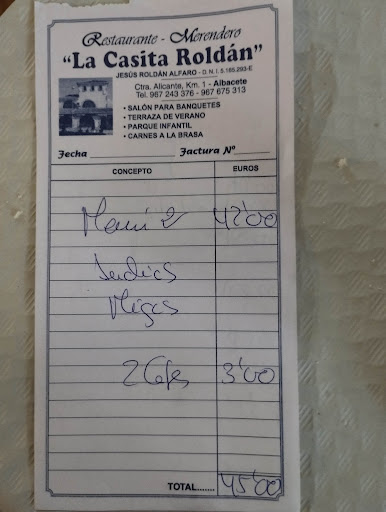 Restaurante - Merendero
“La Casita Roldán”
JESÚS ROLDÁN ALFARO - D. N. I. 5.165.293-E
Ctra. Alicante, Km. 1 - Albacete
Tel. 967 243 376 - 967 675 313
• SALÓN PARA BANQUETES
• TERRAZA DE VERANO
• PARQUE INFANTIL
• CARNES A LA BRASA
Fecha Factura Nº
CONCEPTO EUROS
Menú 2 42'00
Judías
Migas
2 Cafes 3'00
TOTAL....... 45'00